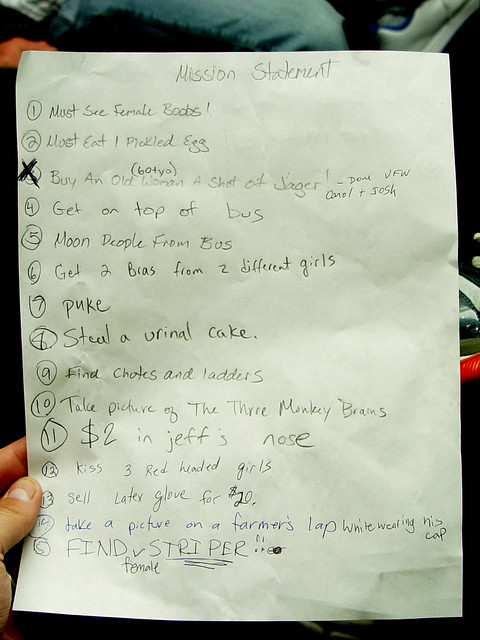 Mission Statement
① Must See Female Boobs!
② Must Eat 1 Pickled Egg
③ Buy An Old (60+yo) Woman A Shot of Jager! - Done VFW
Carol + Josh
④ Get on top of bus
⑤ Moon People From Bus
⑥ Get 2 Bras from 2 different girls
⑦ puke
⑧ Steal a urinal cake.
⑨ Find Chutes and ladders
⑩ Take picture of The Three Monkey Brains
⑪ $2 in jeff's nose
⑫ Kiss 3 Red headed girls
⑬ Sell Latex glove for $20.
⑭ take a picture on a farmer's lap while wearing his cap
⑮ FIND female STRIPER